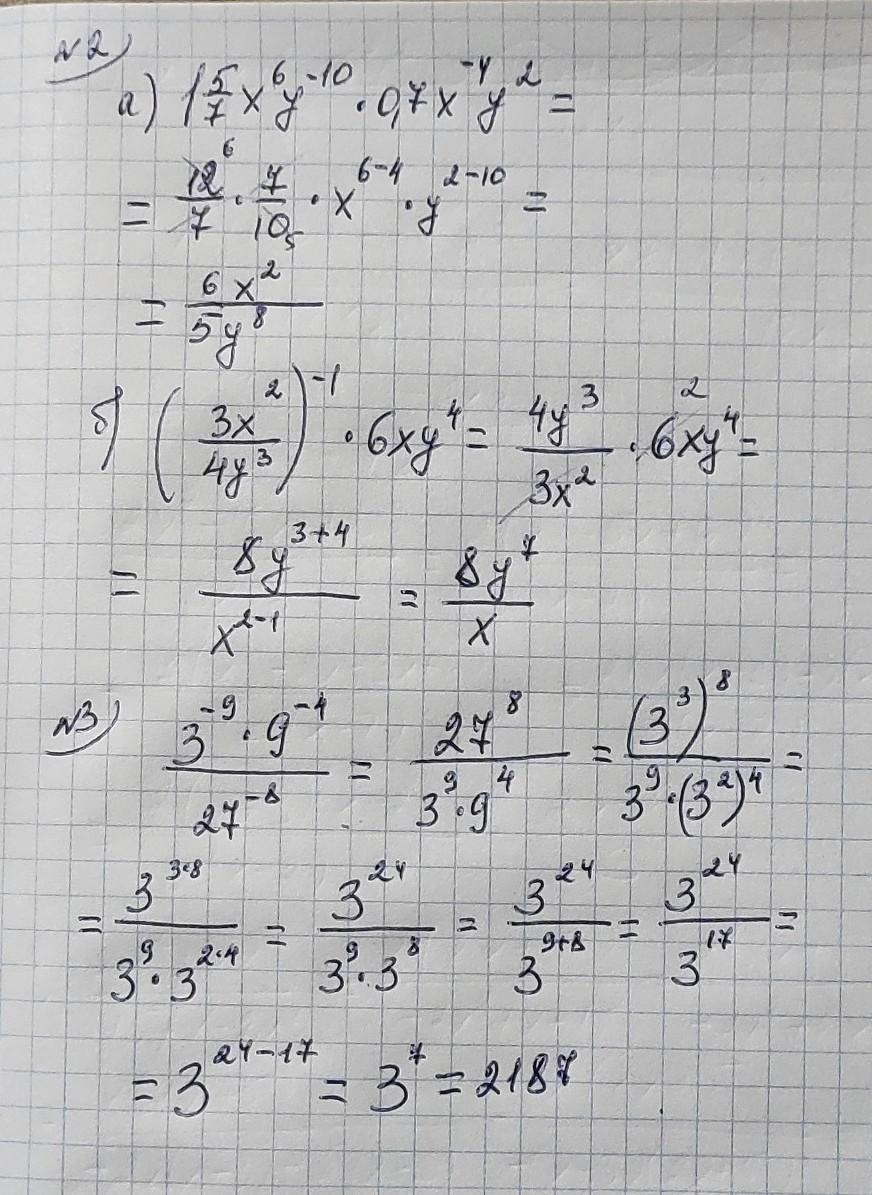 №2)
а) 1 5/7 x⁶y⁻¹⁰ · 0,7x⁻⁴y² =
= 12⁶/7 · 7/10₅ · x⁶⁻⁴ · y²⁻¹⁰ =
= 6x²/5y⁸
б) (3x²/4y³)⁻¹ · 6xy⁴ = 4y³/3x² · 6²xy⁴ =
= 8y³⁺⁴/x²⁻¹ = 8y⁷/x
№3) 3⁻⁹ · 9⁻⁴/27⁻⁸ = 27⁸/3⁹ · 9⁴ = (3³)⁸/3⁹ · (3²)⁴ =
= 3³·⁸/3⁹ · 3²·⁴ = 3²⁴/3⁹ · 3⁸ = 3²⁴/3⁹⁺⁸ = 3²⁴/3¹⁷ =
= 3²⁴⁻¹⁷ = 3⁷ = 2187